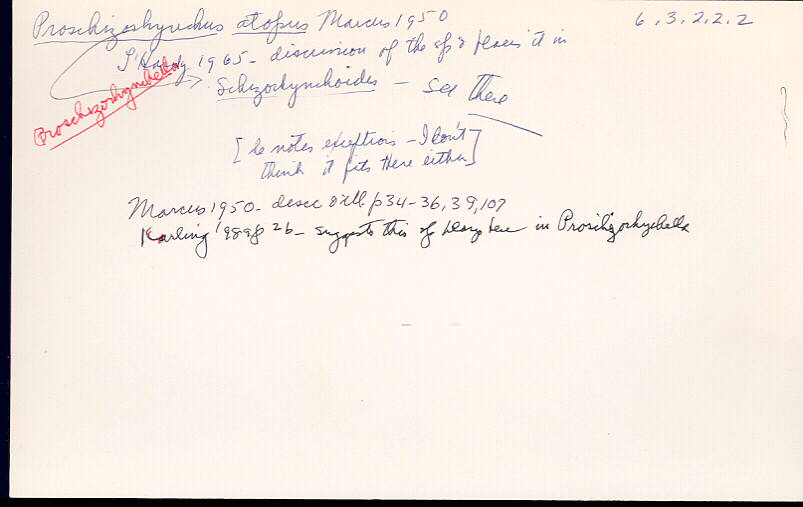 Proschizorhynchus atopus Marcus 1950
6.3.2.2.2
L'Hardy 1965 - discussion of the sp & places it in
Schizorhynchoides - see there
Proschizorhynchella
[he notes exceptions - I don't
think it fits there either]
Marcus 1950 - desc & ill. p34-36, 39, 107
Karling 1989 p 26 - suggests this sp belongs here in Proschizorhynchella